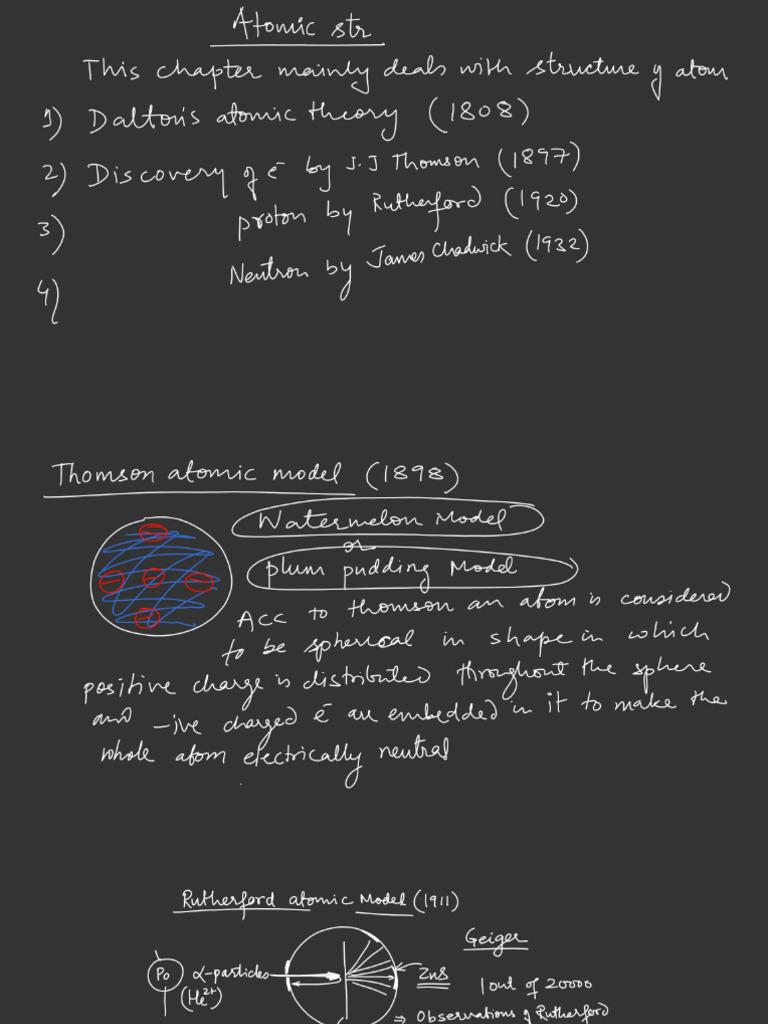 Atomic str
This chapter mainly deals with structure of atom
1) Dalton's atomic theory (1808)
2) Discovery of e⁻ by J.J Thomson (1897)
3) proton by Rutherford (1920)
4) Neutron by James Chadwick (1932)
Thomson atomic model (1898)
Watermelon Model
or
plum pudding Model
Acc to thomson an atom is considered
to be spherical in shape in which
positive charge is distributed throughout the sphere
and -ive charged e⁻ are embedded in it to make the
whole atom electrically neutral
Rutherford atomic Model (1911)
Geiger
Po α-particles ZnS
(He²⁺) 1 out of 20000
⇒ Observations of Rutherford